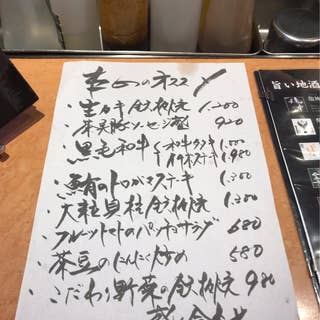 本日のオススメ
・生カキ鉄板焼 1,200
・茶美豚ソーセージ盛 920
・黒毛和牛 1,300
ステーキ 1,980
・鮪のトロかまステーキ 1,300
・大粒貝柱鉄板焼 1,300
フルーツトマトのパンチョサラダ 680
・茶豆のにんにく炒め 580
・こだわり野菜の鉄板焼 980
旨い地酒